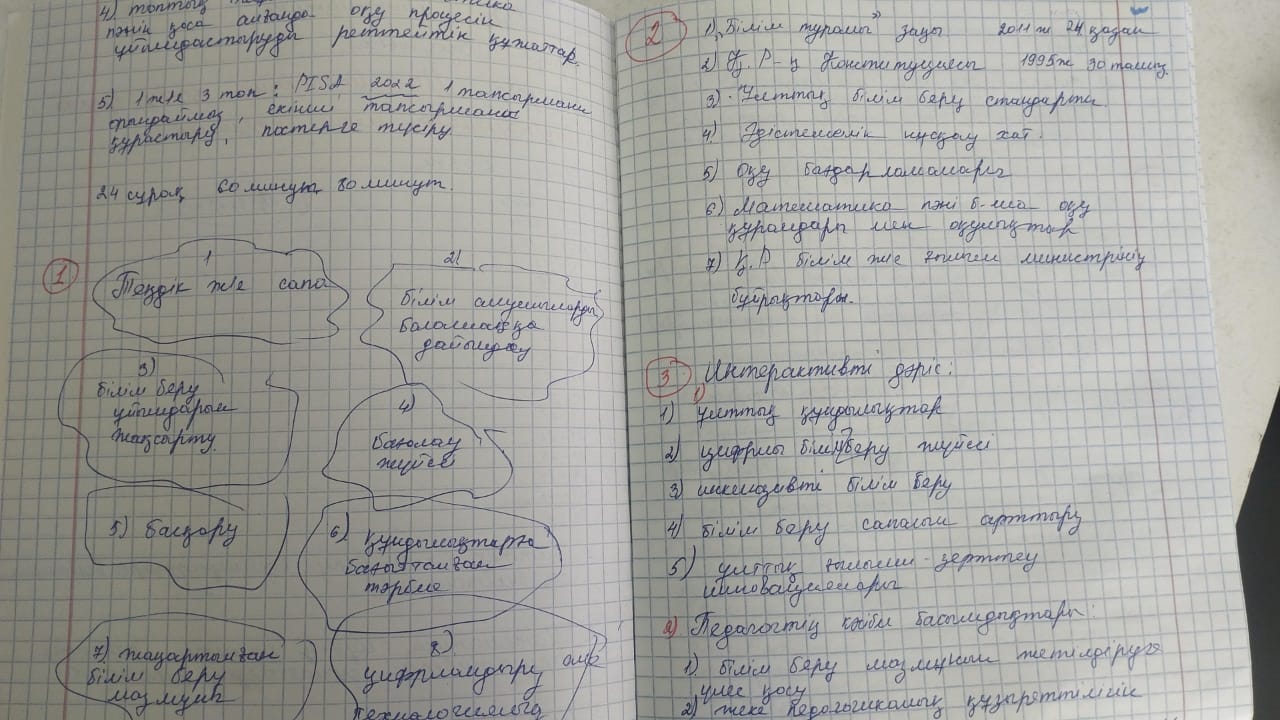 4) топтық
пәнін қоса алғанда оқу процесін
ұйымдастыруды реттейтін құжаттар.
5) 1 және 3 топ: PISA 2022 1 тапсырманы
орындаймыз, екінші тапсырманы
құрастыру, постерге түсіру.
24 сұрақ 60 минут 80 минут.
1
1
Теңдік және сапа
2)
білім алушыларды
болашаққа
дайындау
3)
білім беру
ұйымдарын
жақсарту.
4)
бағалау
жүйесі
5) басқару
6) құндылықтарға
бағытталған
тәрбие
7) жаңартылған
білім беру
мазмұны
8)
цифрландыру
технологиялық
2
1) "Білім туралы" заңы 2011 ж 24 қазан
2) Қ.Р-ң Конституциясы 1995 ж 30 тамыз.
3) Ұлттық білім беру стандарты
4) Әдістемелік нұсқау хат.
5) Оқу бағдарламалары
6) Математика пәні б-ша оқу
құралдары мен оқулықтар
7) Қ.Р білім және ғылым министрінің
бұйрықтары.
3 Интерактивті дәріс:
1)
1) ұлттық құндылықтар
2) цифрлы білім беру жүйесі
3) инклюзивті білім беру
4) білім беру сапасын арттыру
5) ұлттық ғылыми-зерттеу
инновациялары
2) Педагогтің кәсіби басымдықтары:
1) білім беру мазмұнын жетілдіруге
үлес қосу
2) жеке педагогикалық құзыреттілігін